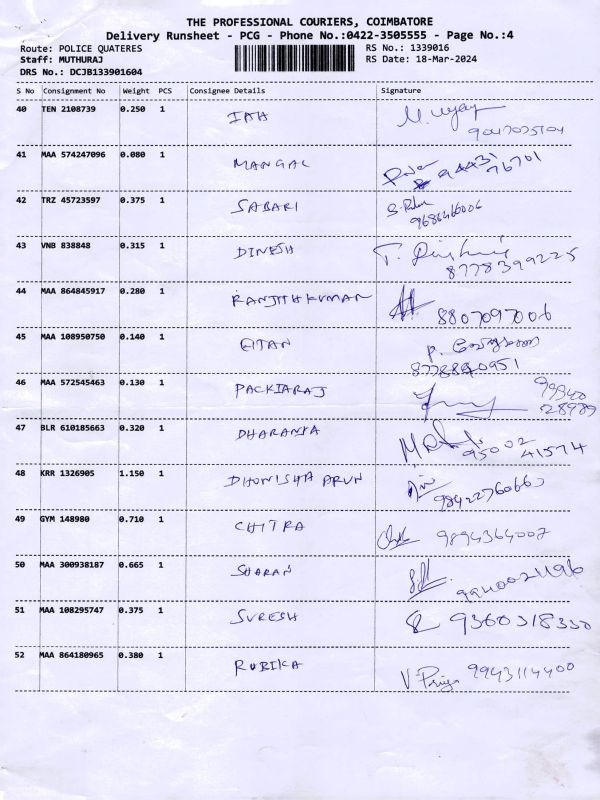 THE PROFESSIONAL COURIERS, COIMBATORE
Delivery Runsheet - PCG - Phone No.:0422-3505555 - Page No.:4
Route: POLICE QUATERES RS No.: 1339016
Staff: MUTHURAJ RS Date: 18-Mar-2024
DRS No.: DCJB133901604
S No Consignment No Weight PCS Consignee Details Signature
40 TEN 2108739 0.250 1
41 MAA 574247096 0.080 1 MANGAL 94431
76701
42 TRZ 45723597 0.375 1 SABARI
9686466006
43 VNB 838848 0.315 1 DINESH
8778399225
44 MAA 864845917 0.280 1 RANJITHKUMAN 8807097006
45 MAA 108950750 0.140 1 EITAN P.
46 MAA 572545463 0.130 1 PACKIARAJ 99940
28989
47 BLR 610185663 0.320 1 DHARANYA
95002 41574
48 KRR 1326905 1.150 1 DHONISHA PRUN
9842276066
49 GYM 148980 0.710 1 CHITRA 9894364007
50 MAA 300938187 0.665 1 SHARAN
9940021196
51 MAA 108295747 0.375 1 SURESH 9360318330
52 MAA 864180965 0.380 1 RUBIKA V Priya 9943114400